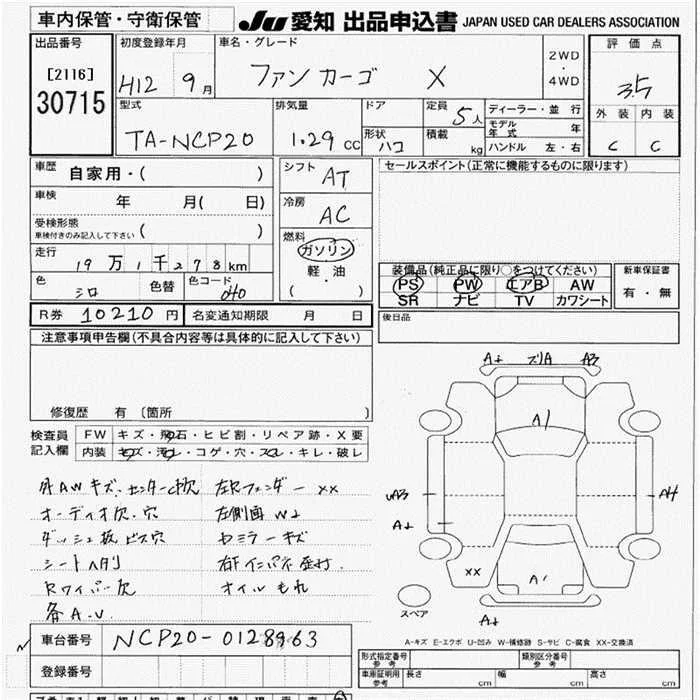 車内保管・守衛保管
JU 愛知 出品申込書 JAPAN USED CAR DEALERS ASSOCIATION
出品番号
[2116]
30715
初度登録年月
H12 9月
車名・グレード
ファンカーゴ X
2WD
・
4WD
評価点
3.5
外装 内装
C C
型式
TA-NCP20
排気量
1.29 CC
ドア
形状 ハコ
定員 5人
積載 kg
ディーラー・並行
モデル年式 年
ハンドル 左・右
車歴 自家用・( )
車検 年 月( 日)
受検形態
車検付きのみ記入して下さい ( )
走行
19万1千278km
色 シロ 色替 色コード 040
シフト AT
冷房 AC
燃料
ガソリン
軽・油
( )
セールスポイント(正常に機能するものに限ります)
装備品(純正品に限り○をつけてください)
PS PW エアB AW
SR ナビ TV カワシート
新車保証書
有・無
R券 10210円 名変通知期限 月 日
後日品
注意事項申告欄(不具合内容等は具体的に記入して下さい)
修復歴 有 〔箇所 〕
検査員記入欄
FW キズ・飛石・ヒビ割・リペア跡・X要
内装 キズ・汚れ・コゲ・穴・スレ・キレ・破レ
外AWキズ.
オーディオ欠.穴
ダッシュ板ビス穴
シートヘタリ
Rワイパー欠
各A.U.
左Rフェンダー XX
左側面
オイルもれ
A+ A3
A1
A3
A4
A+
XX
A+
スペア
A-キズ E-エクボ U-凹み W-補修跡 S-サビ C-腐食 XX-交換済
車台番号 NCP20-0128963
登録番号
形式指定番号
参考
類別区分番号
参考
車庫証明用
参考
長さ 幅 高さ